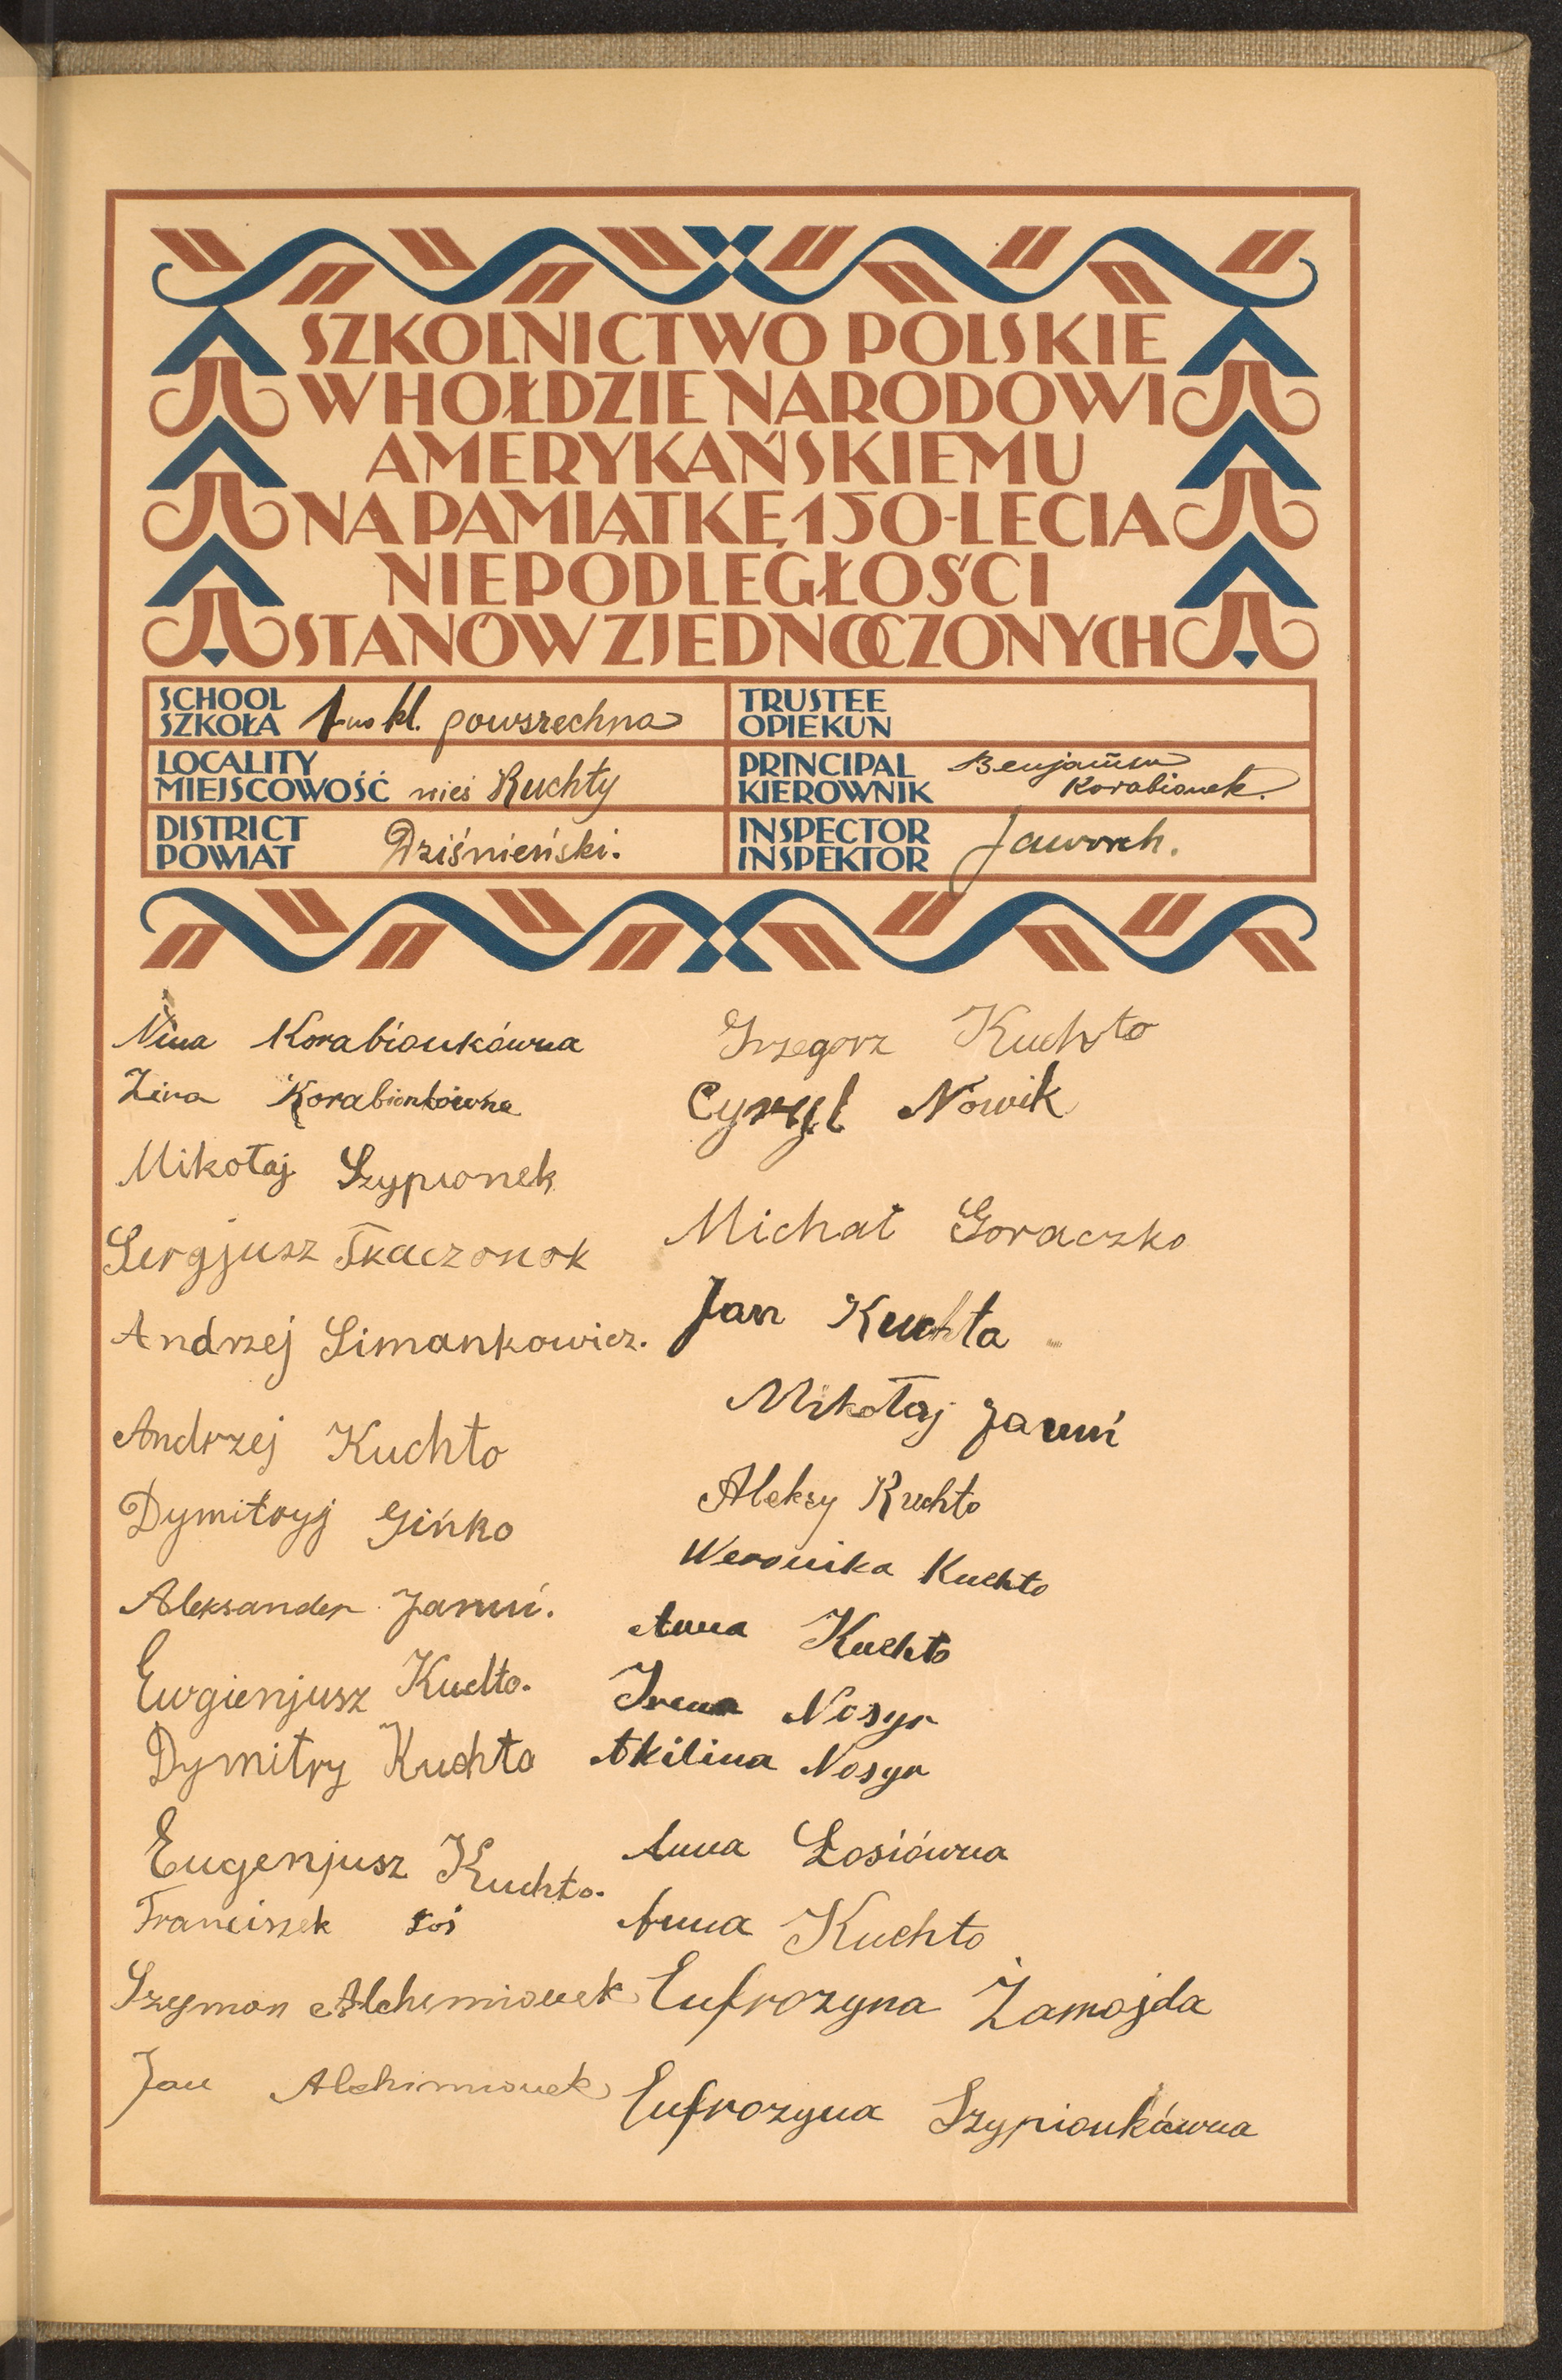 SZKOLNICTWO POLSKIE
W HOŁDZIE NARODOWI
AMERYKAŃSKIEMU
NA PAMIĄTKĘ 150-LECIA
NIEPODLEGŁOŚCI
STANÓW ZJEDNOCZONYCH
SCHOOL
SZKOŁA 1-no kl. powszechna
TRUSTEE
OPIEKUN
LOCALITY
MIEJSCOWOŚĆ wieś Kuchty
PRINCIPAL Benjamin
KIEROWNIK Korabionek.
DISTRICT
POWIAT Dziśnieński.
INSPECTOR
INSPEKTOR
Nina Korabionkówna
Zina Korabionkówna
Mikołaj Szypionek
Sergjusz Tkaczonok
Andrzej Simankowicz.
Andrzej Kuchto
Dymitryj Gińko
Aleksander
Ewgienjusz Kuchto.
Dymitry Kuchto
Eugenjusz Kuchto.
Franciszek Łoś
Szymon Alchimionek
Jan Alchimionek
Grzegorz Kuchto
Cyryl Nowik
Michał Goraczko
Jan Kuchta
Mikołaj
Aleksy Kuchto
Weronika Kuchto
Anna Kuchto
Irena Nosyr
Akilina Nosyr
Anna Łosiówna
Anna Kuchto
Eufrozyna Żamojda
Eufrozyna Szypionkówna